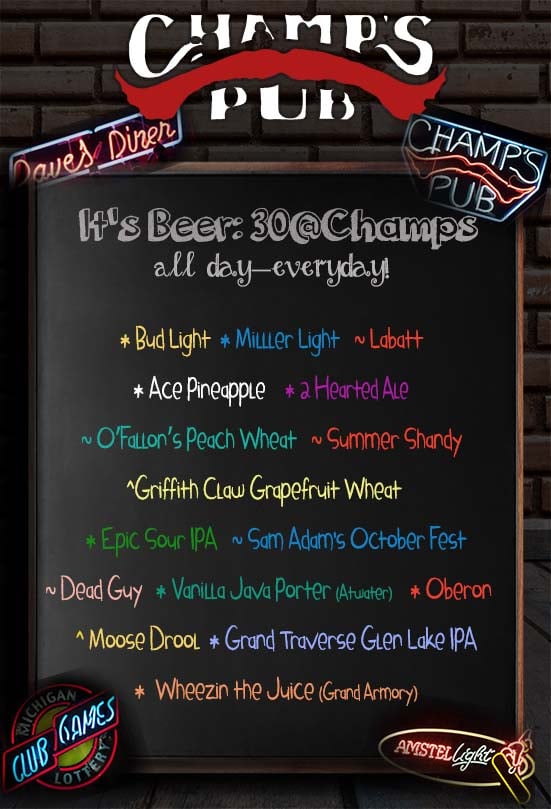 CHAMP'S
PUB
Dave's Diner
CHAMP'S
PUB
It's Beer: 30@Champs
all day—everyday!
* Bud Light * Milller Light ~ Labatt
* Ace Pineapple * 2 Hearted Ale
~ O'Fallon's Peach Wheat ~ Summer Shandy
^Griffith Claw Grapefruit Wheat
* Epic Sour IPA ~ Sam Adam's October Fest
~ Dead Guy * Vanilla Java Porter (Atwater) * Oberon
^ Moose Drool * Grand Traverse Glen Lake IPA
* Wheezin the Juice (Grand Armory)
MICHIGAN
CLUB GAMES
LOTTERY
AMSTEL Light